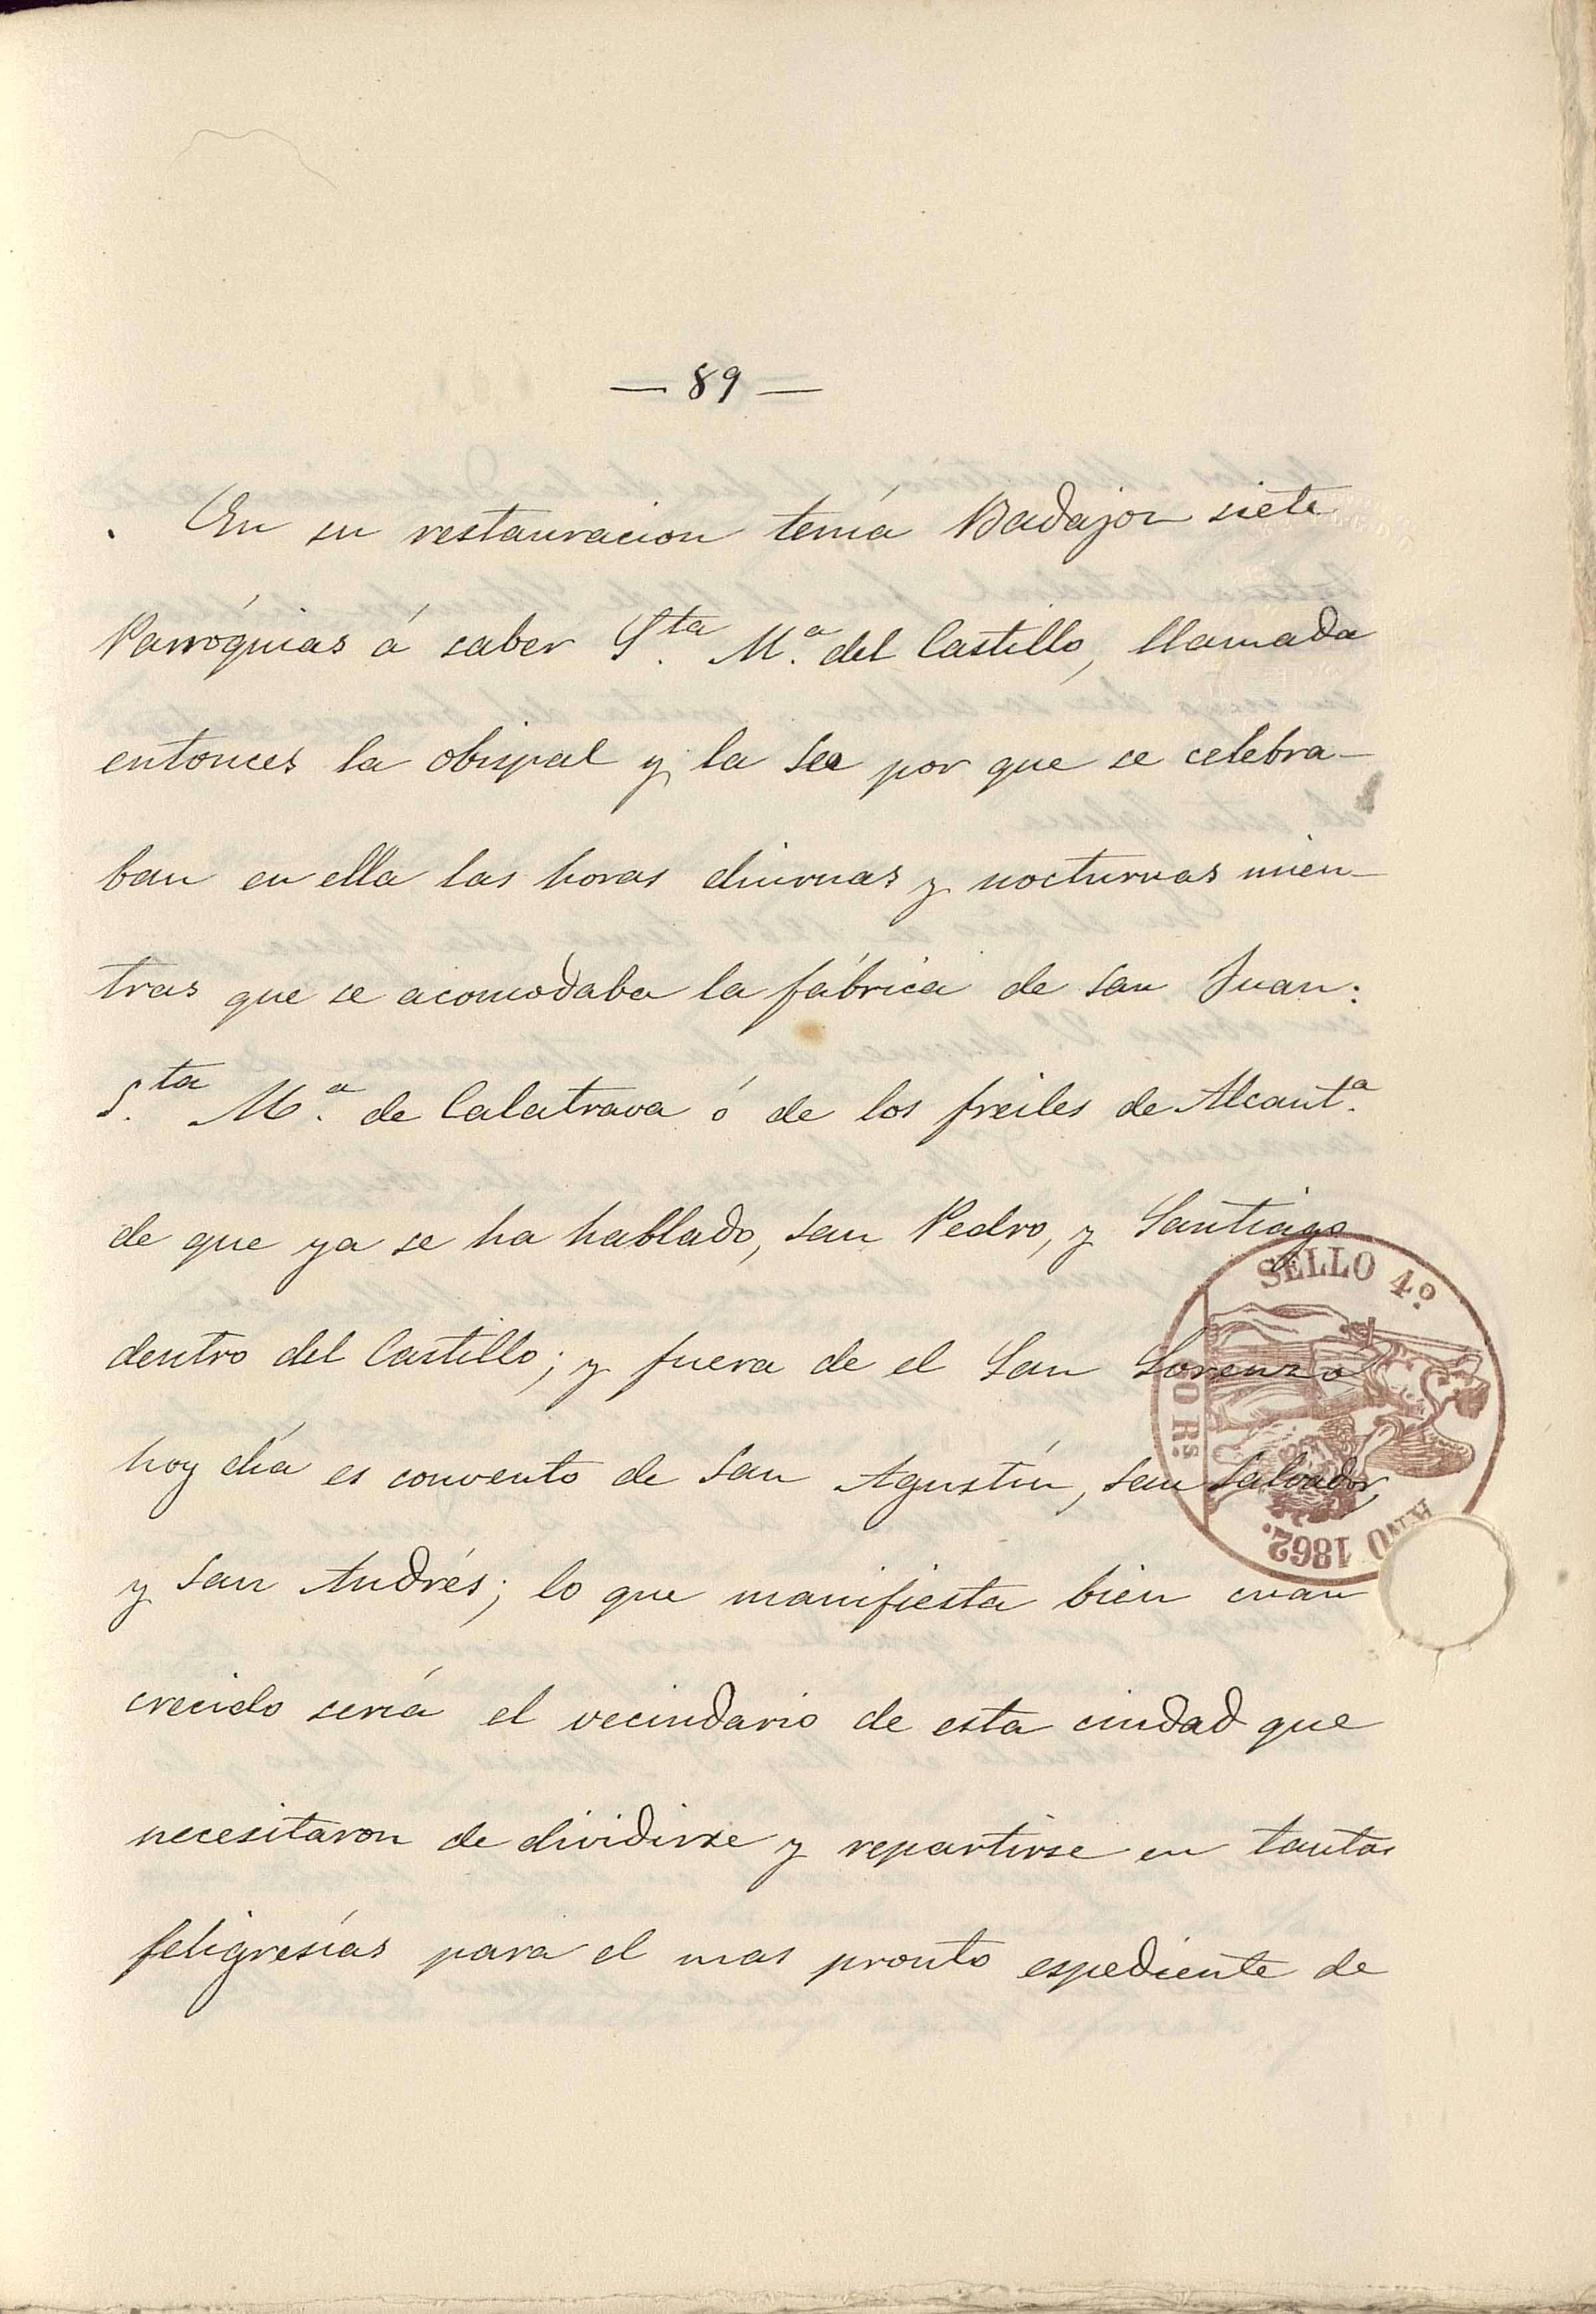 — 89 —
En su restauracion tenía Badajoz siete
Parróquias á saber S.ta M.a del Castillo, llamada
entonces la obispal y la See por que se celebra-
ban en ella las horas diurnas y nocturnas mien-
tras que se acomodaba la fábrica de San Juan:
S.ta M.a de Calatrava ó de los freiles de Alcant.a
de que ya se ha hablado, San Pedro, y Santiago
dentro del Castillo; y fuera de el San Lorenzo
hoy día es convento de San Agustín, San Salvador,
y San Andrés; lo que manifiesta bien cuan
crecido sería el vecindario de esta ciudad que
necesitaron de dividirse y repartirse en tantas
feligresías para el mas pronto espediente de
SELLO 4.º
AÑO 1862.